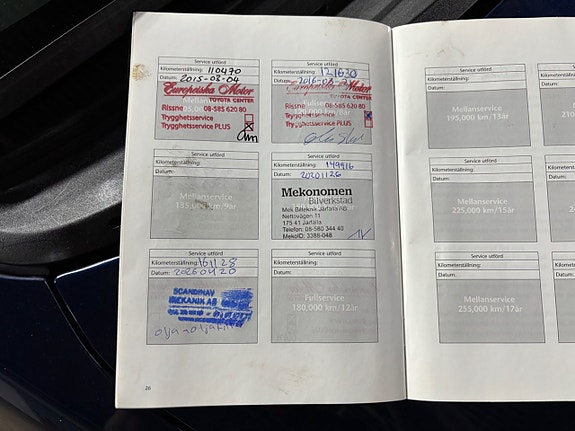 Service utförd
Kilometerställning: 110470
Datum: 2015-03-04
Europeiska Motor
TOYOTA CENTER
Rissne 08-585 620 80
Trygghetsservice
Trygghetsservice PLUS
Service utförd
Kilometerställning: 121630
Datum: 2016-03-
Europeiska Motor
TOYOTA CENTER
Rissne 08-585 620 80
Trygghetsservice
Trygghetsservice PLUS
Service utförd
Kilometerställning:
Datum:
Mellanservice
135,000 km/9år
Service utförd
Kilometerställning: 149916
Datum: 20201126
Mekonomen
Bilverkstad
Mek Bilteknik Järfälla AB
Nettovägen 11
175 41 Järfälla
Telefon: 08-580 344 40
MekoID: 3388-048
Service utförd
Kilometerställning: 161128
Datum: 20260420
SCANDINAV
MEKANIK AB
Service utförd
Kilometerställning:
Datum:
Fullservice
180,000 km/12år
26
Service utförd
Kilometerställning:
Datum:
Mellanservice
195,000 km/13år
210
Service utförd
Kilometerställning:
Datum:
Mellanservice
225,000 km/15år
Service utförd
Kilometerställning:
Datum:
Mellanservice
255,000 km/17år